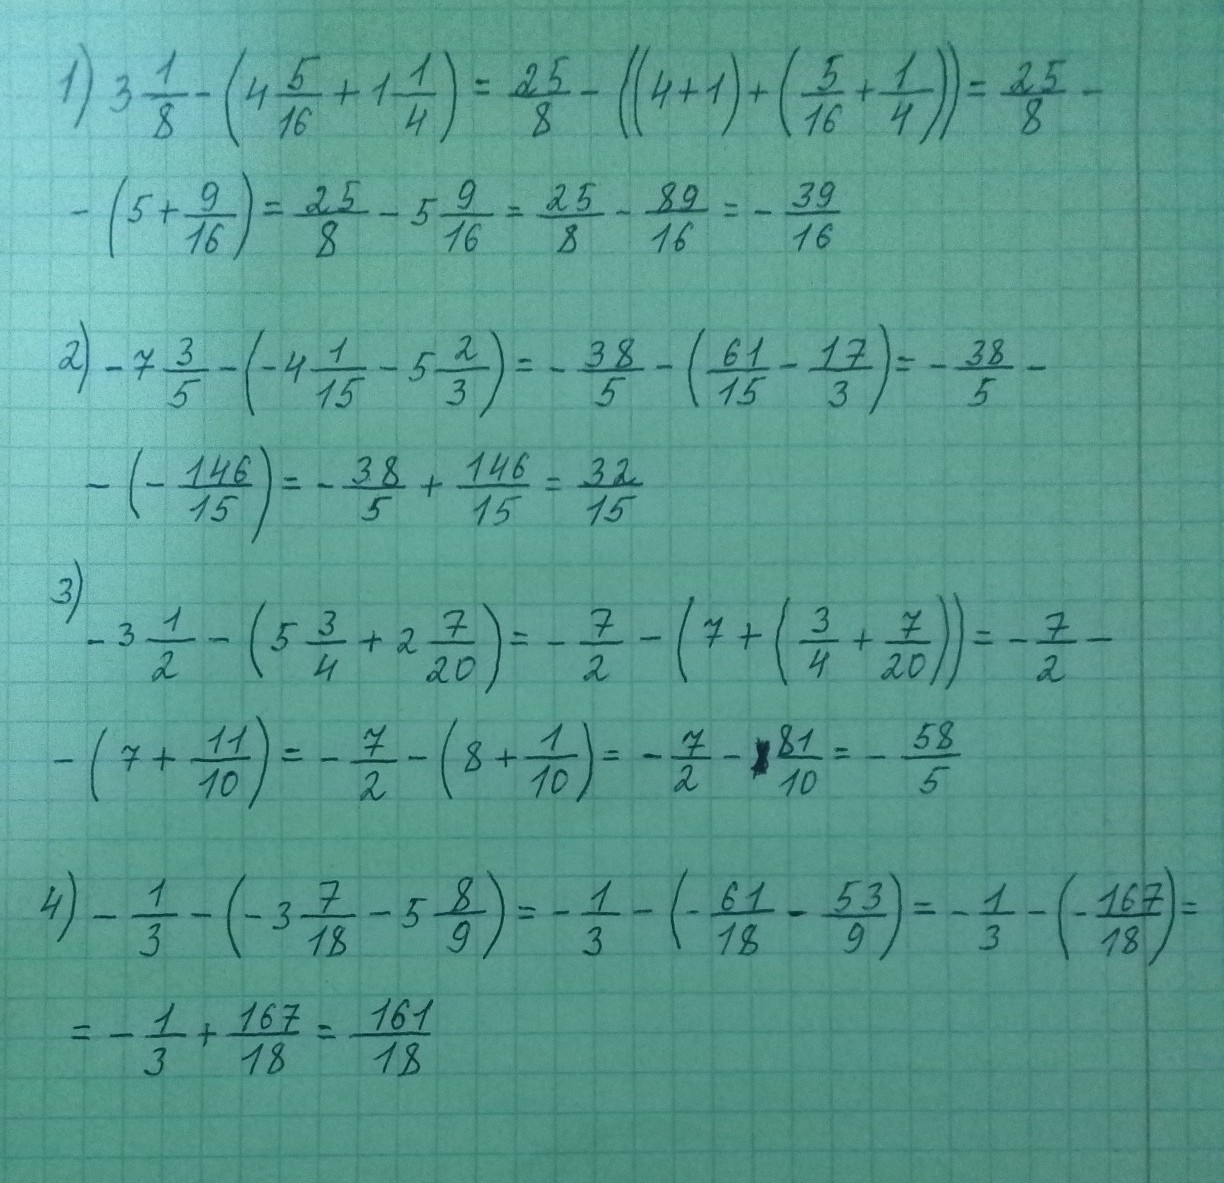 1) 3 1/8 - (4 5/16 + 1 1/4) = 25/8 - ((4+1) + (5/16 + 1/4)) = 25/8 -
- (5 + 9/16) = 25/8 - 5 9/16 = 25/8 - 89/16 = - 39/16
2) - 7 3/5 - (-4 1/15 - 5 2/3) = - 38/5 - (61/15 - 17/3) = - 38/5 -
- (- 146/15) = - 38/5 + 146/15 = 32/15
3)
- 3 1/2 - (5 3/4 + 2 7/20) = - 7/2 - (7 + (3/4 + 7/20)) = - 7/2 -
- (7 + 11/10) = - 7/2 - (8 + 1/10) = - 7/2 - 81/10 = - 58/5
4) - 1/3 - (-3 7/18 - 5 8/9) = - 1/3 - (- 61/18 - 53/9) = - 1/3 - (- 167/18) =
= - 1/3 + 167/18 = 161/18